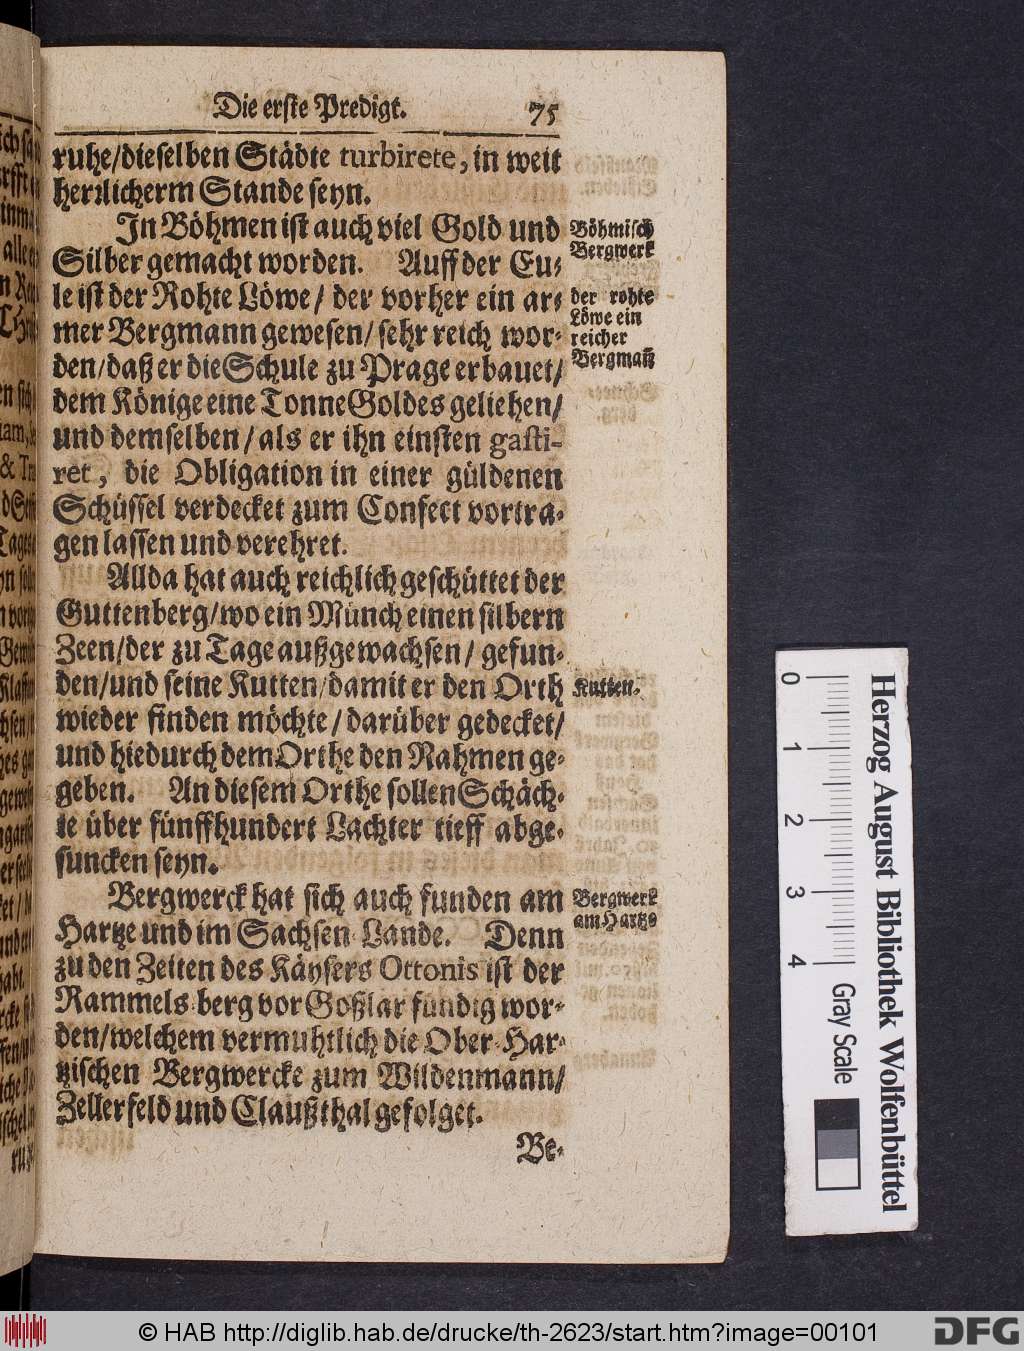 Die erste Predigt. 75
ruhe/dieselben Städte turbirete, in weit
herꝛlicherm Stande seyn.
In Böhmen ist auch viel Gold und
Silber gemacht worden. Auff der Eu-
le ist der Rohte Löwe/ der vorher ein ar-
mer Bergmann gewesen/ sehr reich wor-
den/daß er die Schule zu Prage erbauet/
dem Könige eine Tonne Goldes geliehen/
und demselben/als er ihn einsten gasti-
ret, die Obligation in einer güldenen
Schüssel verdecket zum Confect vortra-
gen lassen und verehret.
Allda hat auch reichlich geschüttet der
Guttenberg/wo ein Münch einen silbern
Zeen/der zu Tage außgewachsen/ gefun-
den/und seine Kutten/damit er den Orth
wieder finden möchte/darüber gedecket/
und hiedurch dem Orthe den Nahmen ge-
geben. An diesem Orthe sollen Schäch-
te über fünffhundert Lachter tieff abge-
suncken seyn.
Bergwerck hat sich auch funden am
Hartze und im Sachsen-Lande. Denn
zu den Zeiten des Käysers Ottonis ist der
Rammels-berg vor Goßlar fündig wor-
den/welchem vermuhtlich die Ober-Har-
tzischen Bergwercke zum Wildenmann/
Zellerfeld und Claußthal gefolget.
Be-
Böhmisch
Bergwerk
der rohte
Löwe ein
reicher
Bergmañ
Kutten.
Bergwerk
am Hartze
0
1
2
3
4
Gray Scale
Herzog August Bibliothek Wolfenbüttel
© HAB http://diglib.hab.de/drucke/th-2623/start.htm?image=00101
DFG